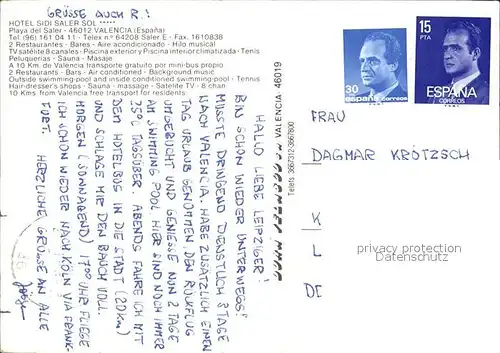 GRÜSSE AUCH R.!
HOTEL SIDI SALER SOL *****
Playa del Saler - 46012 VALENCIA (España)
Tel (96) 161 04 11 - Telex n.º 64208 Saler E - Fax. 1610838
2 Restaurantes - Bares - Aire acondicionado - Hilo musical
TV satélite 8 canales - Piscina exterior y Piscina interior climatizada - Tenis
Peluquerias - Sauna - Masaje
A 10 Km. de Valencia transporte gratuito por mini-bus propio
2 Restaurants - Bars - Air conditioned - Background music
Outside swimming-pool and inside conditioned swimming-pool - Tennis
Hair-dresser's shops - Sauna - massage - Satelite TV - 8 chan
10 Kms from Valencia free transport for residents
HALLO LIEBE LEIPZIGER!
BIN SCHON WIEDER UNTERWEGS.
MUSSTE DRINGEND DIENSTLICH 3 TAGE
NACH VALENCIA. HABE ZUSÄTZLICH EINEN
TAG URLAUB GENOMMEN, DEN RÜCKFLUG
UMGEBUCHT UND GENIESSE NUN 2 TAGE
AM SWIMMING POOL. HIER SIND NOCH IMMER
25°, TAGSÜBER. ABENDS FAHRE ICH MIT
DEM HOTELBUS IN DIE STADT (20km)
UND SCHLAGE MIR DEN BAUCH VOLL.
MORGEN (SONNABEND) 17⁰⁰ UHR FLIEGE
ICH SCHON WIEDER NACH KÖLN VIA FRANK-
FURT. HERZLICHE GRÜSSE AN ALLE
VALENCIA 46019
Telefs 3667312-3667800
30
españa
correos
15
PTA
ESPAÑA
CORREOS
FRAU
DAGMAR KRÖTZSCH
K
L
DE
privacy protection
Datenschutz